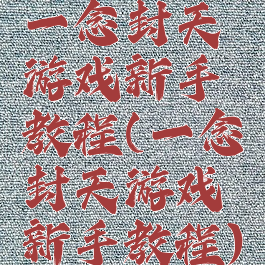 一念封天
游戏新手
教程(一念
封天游戏
新手教程)